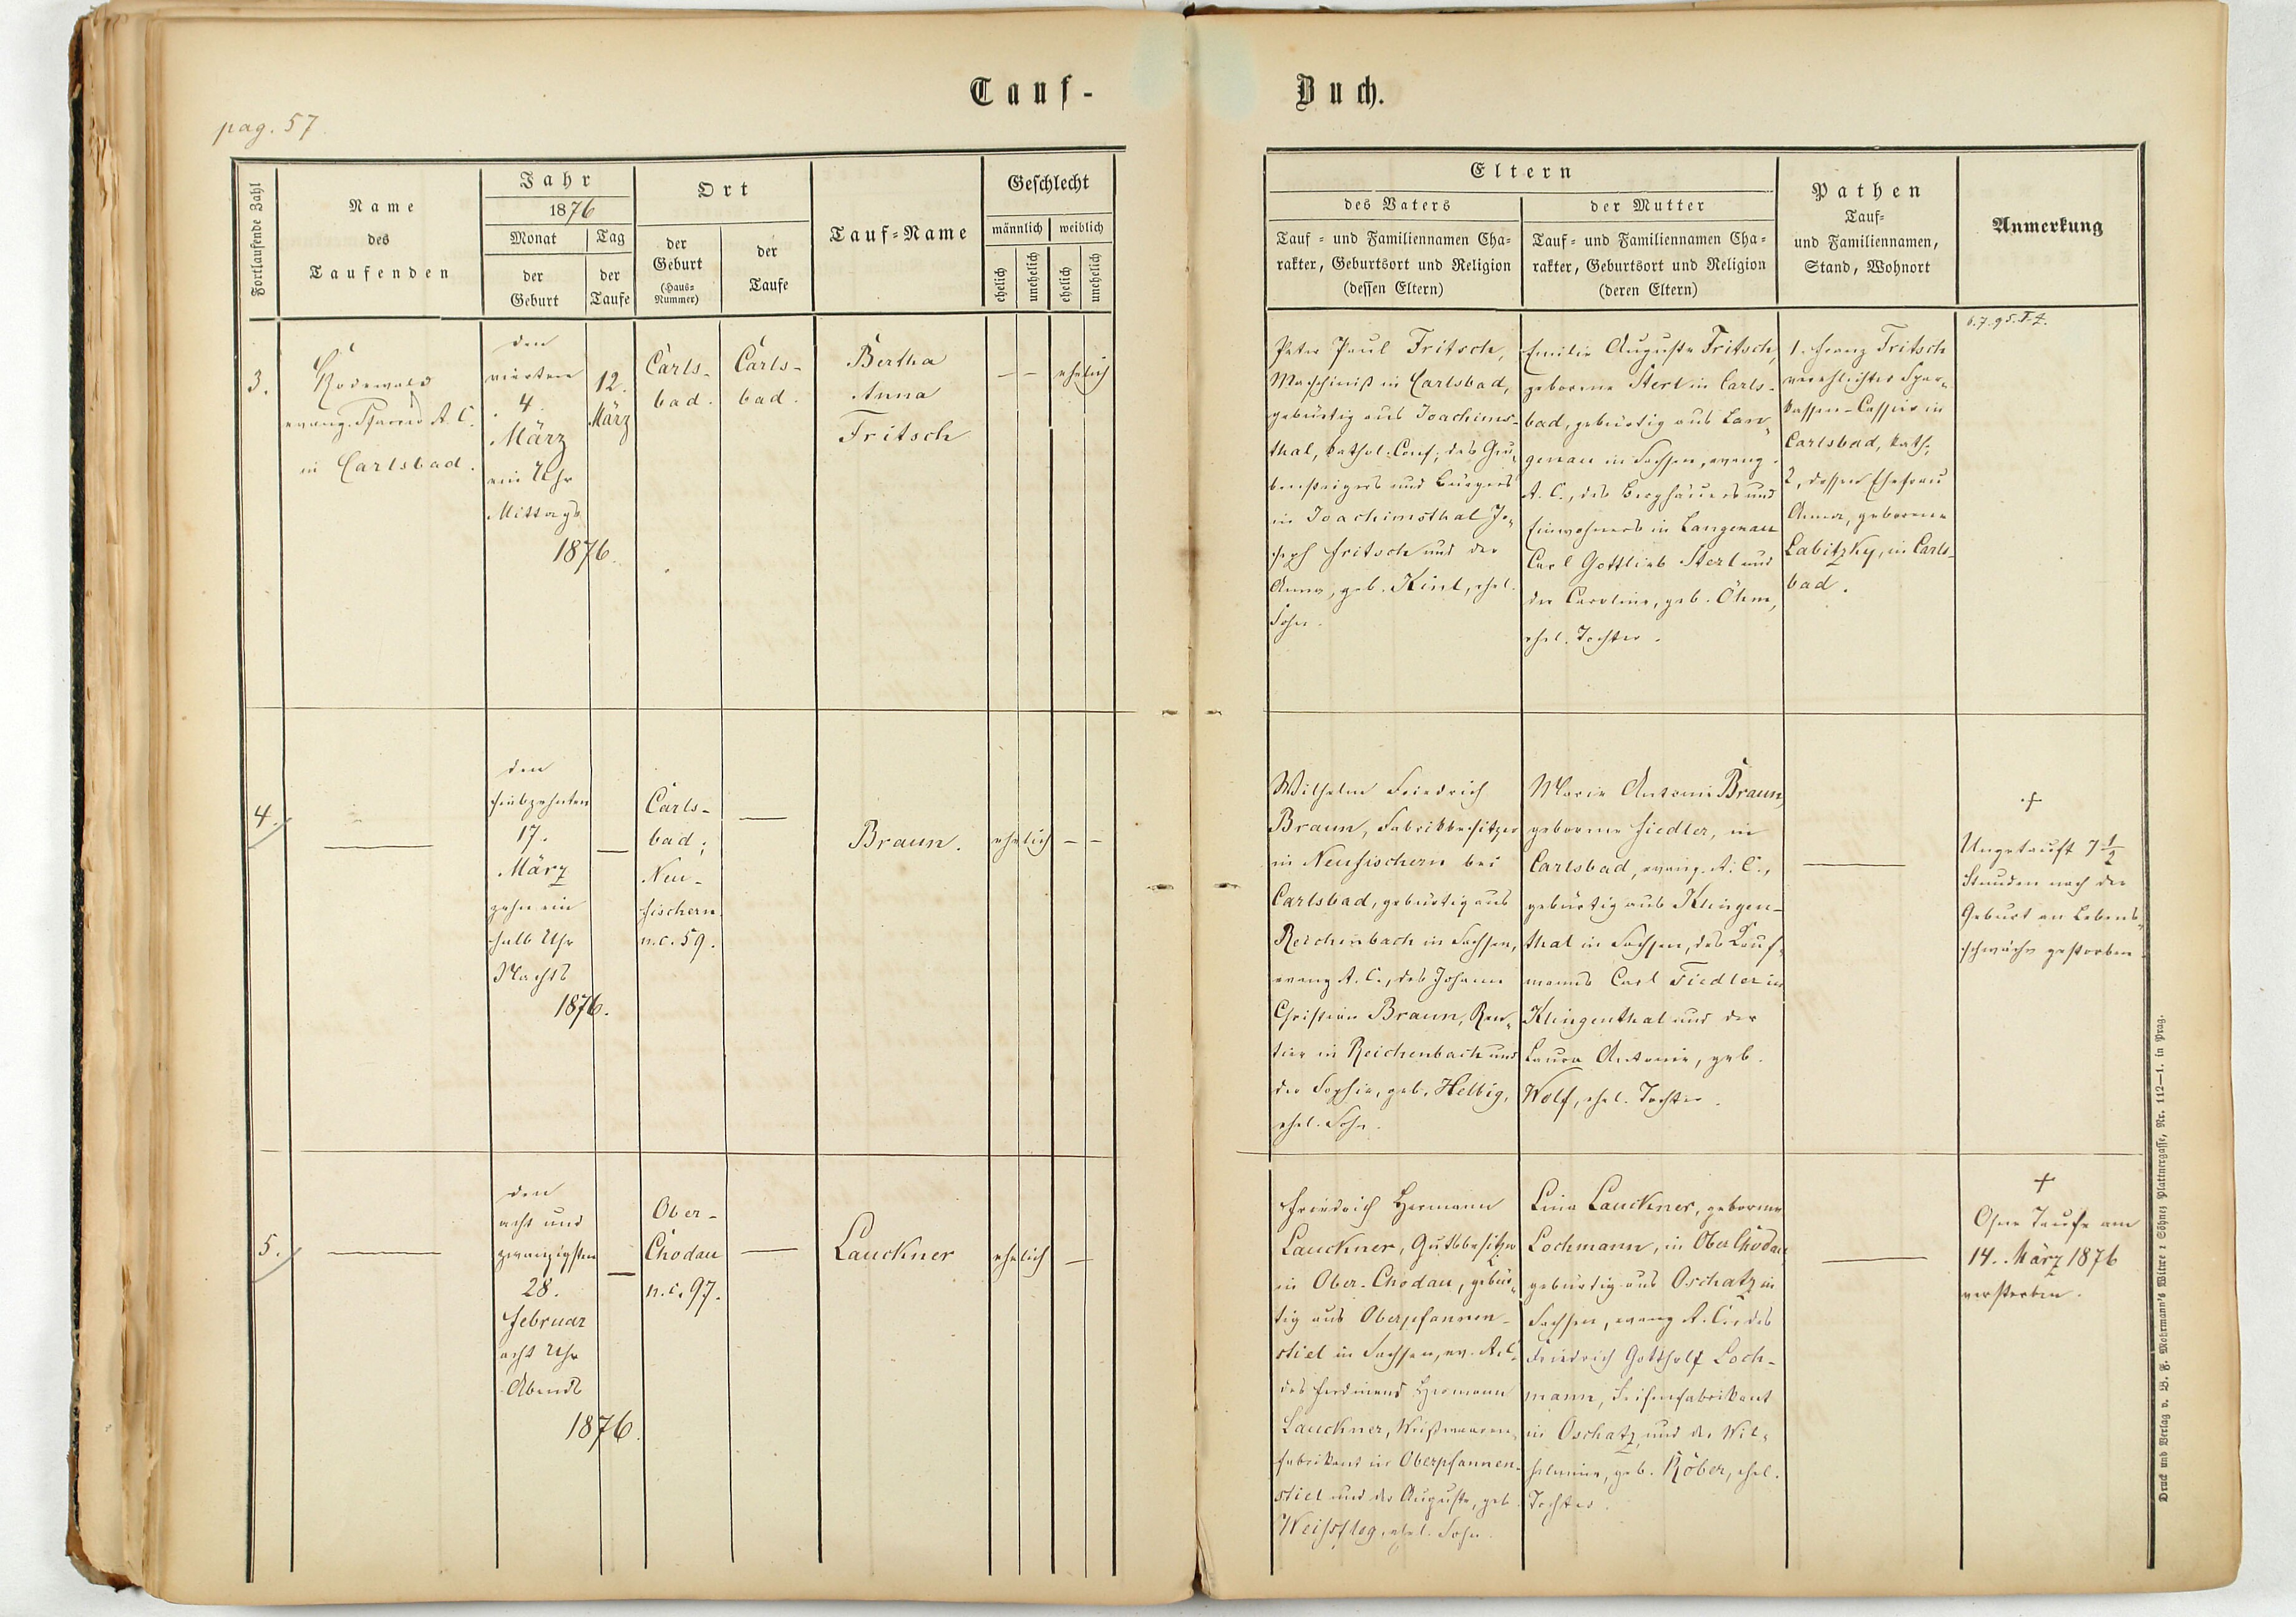 Tauf-
Buch.
pag. 57
Fortlaufende Zahl
Name
des
Taufenden
Jahr
1876
Monat
der
Geburt
Tag
der
Taufe
Ort
der
Geburt
(Haus-
Nummer)
der
Taufe
Tauf-Name
Geschlecht
männlich
weiblich
ehelich
unehelich
ehelich
unehelich
Eltern
des Vaters
Tauf- und Familiennamen Cha-
rakter, Geburtsort und Religion
(dessen Eltern)
der Mutter
Tauf- und Familiennamen Cha-
rakter, Geburtsort und Religion
(deren Eltern)
Pathen
Tauf-
und Familiennamen,
Stand, Wohnort
Anmerkung
3.
Rodewald
evang. Pfarrer A. C.
in Carlsbad.
den
vierten
4.
März
ein Uhr
Mittags
1876.
12.
März
Carls-
bad.
Carls-
bad.
Bertha
Anna
Fritsch
– –
ehelich
Peter Paul Fritsch,
Maschinist in Carlsbad,
gebürtig aus Joachims-
thal, kathol. Conf., des Gru-
bensteigers und Bürgers
in Joachimsthal Jo-
seph Fritsch und der
Anna, geb. Kint, ehel.
Sohn.
Emilie Auguste Fritsch,
geborene Sterl in Carls-
bad, gebürtig aus Lan-
genau in Sachsen, evang.
A. C., des Berghäuers und
Einwohners in Langenau
Carl Gottlieb Sterl und
der Caroline, geb. Öhm,
ehel. Tochter.
1. Franz Fritsch
verehlichter Spar-
kassen-Cassier in
Carlsbad, kath.
2, dessen Ehefrau
Anna, geborene
Labitzky, in Carls-
bad.
4.
den
siebzehnten
17.
März
zehn ein
halb Uhr
Nachts
1876.
Carls-
bad;
Neu-
fischern
n.c. 59.
Braun.
ehelich
– –
Wilhelm Friedrich
Braun, Fabrikbesitzer
in Neufischern bei
Carlsbad, gebürtig aus
Reichenbach in Sachsen,
evang A. C., des Johann
Christian Braun, Ren-
tier in Reichenbach und
der Sophie, geb. Helbig,
ehel. Sohn.
Marie Antonie Braun,
geborene Fiedler, in
Carlsbad, evang. A. C.,
gebürtig aus Klingen-
thal in Sachsen, des Kauf-
manns Carl Fiedler in
Klingenthal und der
Laura Antonie, geb.
Wolf, ehel. Tochter.
†
Ungetauft 7 1/2
Stunden nach der
Geburt an Lebens-
schwäche gestorben.
5.
den
acht und
zwanzigsten
28.
Februar
acht Uhr
Abends
1876.
Ober-
Chodau
n.c. 97.
Lauckner
ehelich
–
Friedrich Hermann
Lauckner, Gutsbesitzer
in Ober-Chodau, gebür-
tig aus Oberpfannen-
stiel in Sachsen, ev. A. C.
des Ferdinand Hermann
Lauckner, Weißwaaren-
fabrikant in Oberpfannen-
stiel und der Auguste, geb.
Weissflog, ehel. Sohn.
Lina Lauckner, geborene
Lochmann, in Ober Chodau,
gebürtig aus Oschatz in
Sachsen, evang A. C., des
Friedrich Gotthelf Loch-
mann, Seifenfabrikant
in Oschatz und der Wil-
helmine, geb. Röber, ehel.
Tochter.
†
Ohne Taufe am
14. März 1876
verstorben.
Druck und Verlag v. B. F. Mohrmann's Witwe & Söhne, Plattnergasse, Nr. 112—1. in Prag.